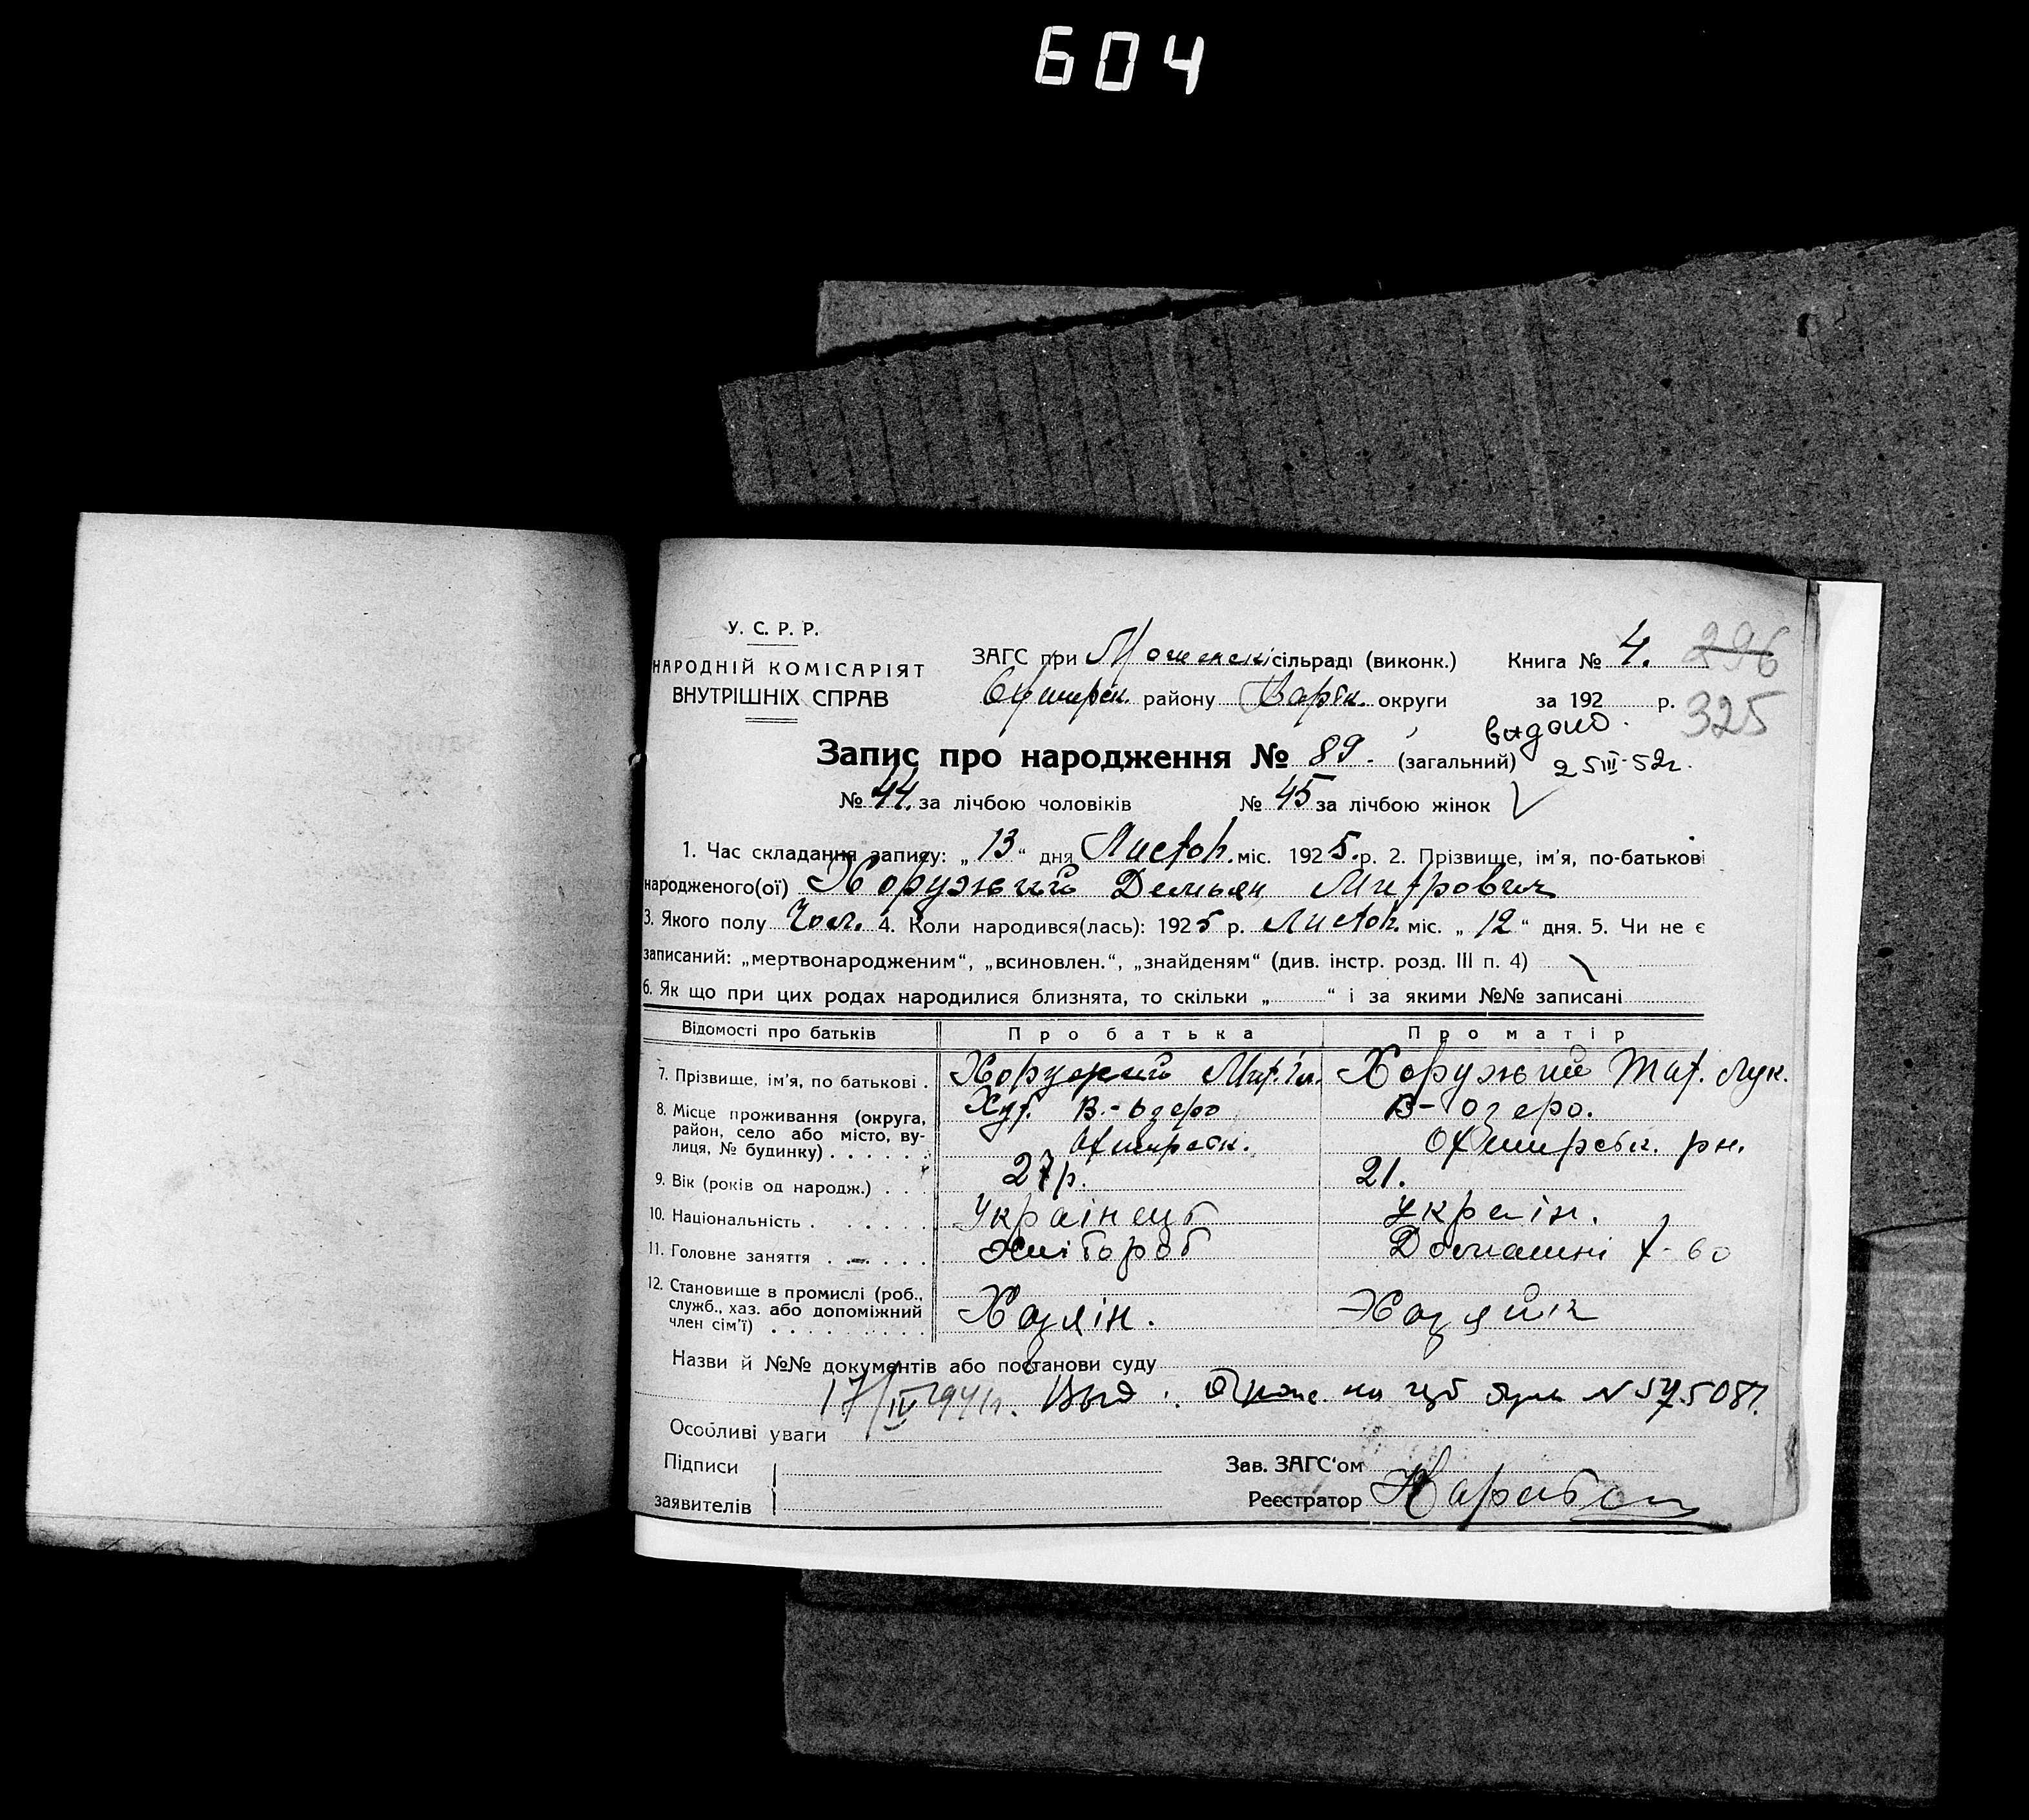 604
У. С. Р. Р.
НАРОДНІЙ КОМІСАРІЯТ
ВНУТРІШНІХ СПРАВ
ЗАГС при сільраді (виконк.) Книга № 4. 296
району Харк. округи за 192 р. 325
видано.
Запис про народження № 89. (загальний) 25 III-52г.
№ 44. за лічбою чоловіків № 45 за лічбою жінок
1. Час складання запису: „13“ дня Листоп. міс. 1925. р. 2. Прізвище, ім'я, по-батькові
народженого(ої) Хоружий Демьян Митрович
3. Якого полу Чол. 4. Коли народився(лась): 1925 р. Листоп. міс. „12“ дня. 5. Чи не є
записаний: „мертвонародженим“, „всиновлен.“, „знайденям“ (див. інстр. розд. III п. 4)
6. Як що при цих родах народилися близнята, то скільки „ “ і за якими №№ записані
Відомості про батьків Про батька Про матір
7. Прізвище, ім'я, по батькові . Хоружий Мит. Хоружий Тат. Лук.
8. Місце проживання (округа, район, село або місто, вулиця, № будинку) . . . . . . Хут. В.-Озеро В-Озеро.
Охтирськ. рн.
9. Вік (років од народж.) . . . 27р. 21.
10. Національність . . . . . . Українець Україн.
11. Головне заняття . . . . . Хлібороб Домашні
12. Становище в промислі (роб., служб., хаз. або допоміжний член сім'ї) . . . . . . . . . . Хазяін. Хазяйк
Назви й №№ документів або постанови суду
17/IV 1941г. Выд. № 575081.
Особливі уваги
Підписи Зав. ЗАГС'ом
заявителів Реєстратор